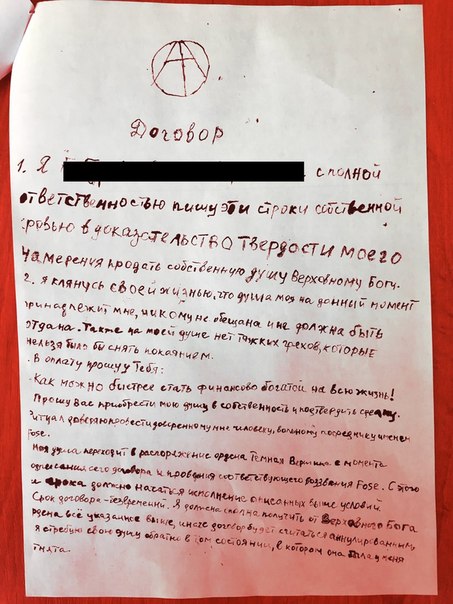 Договор
1. Я с полной
ответственностью пишу эти строки собственной
кровью в доказательство твердости моего
намерения продать собственную душу Верховному Богу.
2. Я клянусь своей жизнью, что душа моя на данный момент
принадлежит мне, никому не обещана и не должна быть
отдана. Также на моей душе нет тяжких грехов, которые
нельзя было бы снять покаянием.
. В оплату прошу у Тебя:
- Как можно быстрее стать финансово богатой на всю жизнь!
Прошу Вас приобрести мою душу в собственность и подтвердить сделку.
Ритуал доверяю провести доверенному мне человеку, вольному посреднику именем
Fose.
Моя душа переходит в распоряжение ордена Темная Вершина с момента
подписания сего договора и проведения соответствующего воззвания Fose. С этого
и срока должно начаться исполнение описанных выше условий.
Срок договора - безвременный. Я должна сполна получить от Верховного Бога
рдена всё указанное выше, иначе договор будет считаться аннулированным,
я стребую свою душу обратно в том состоянии, в котором она была у меня